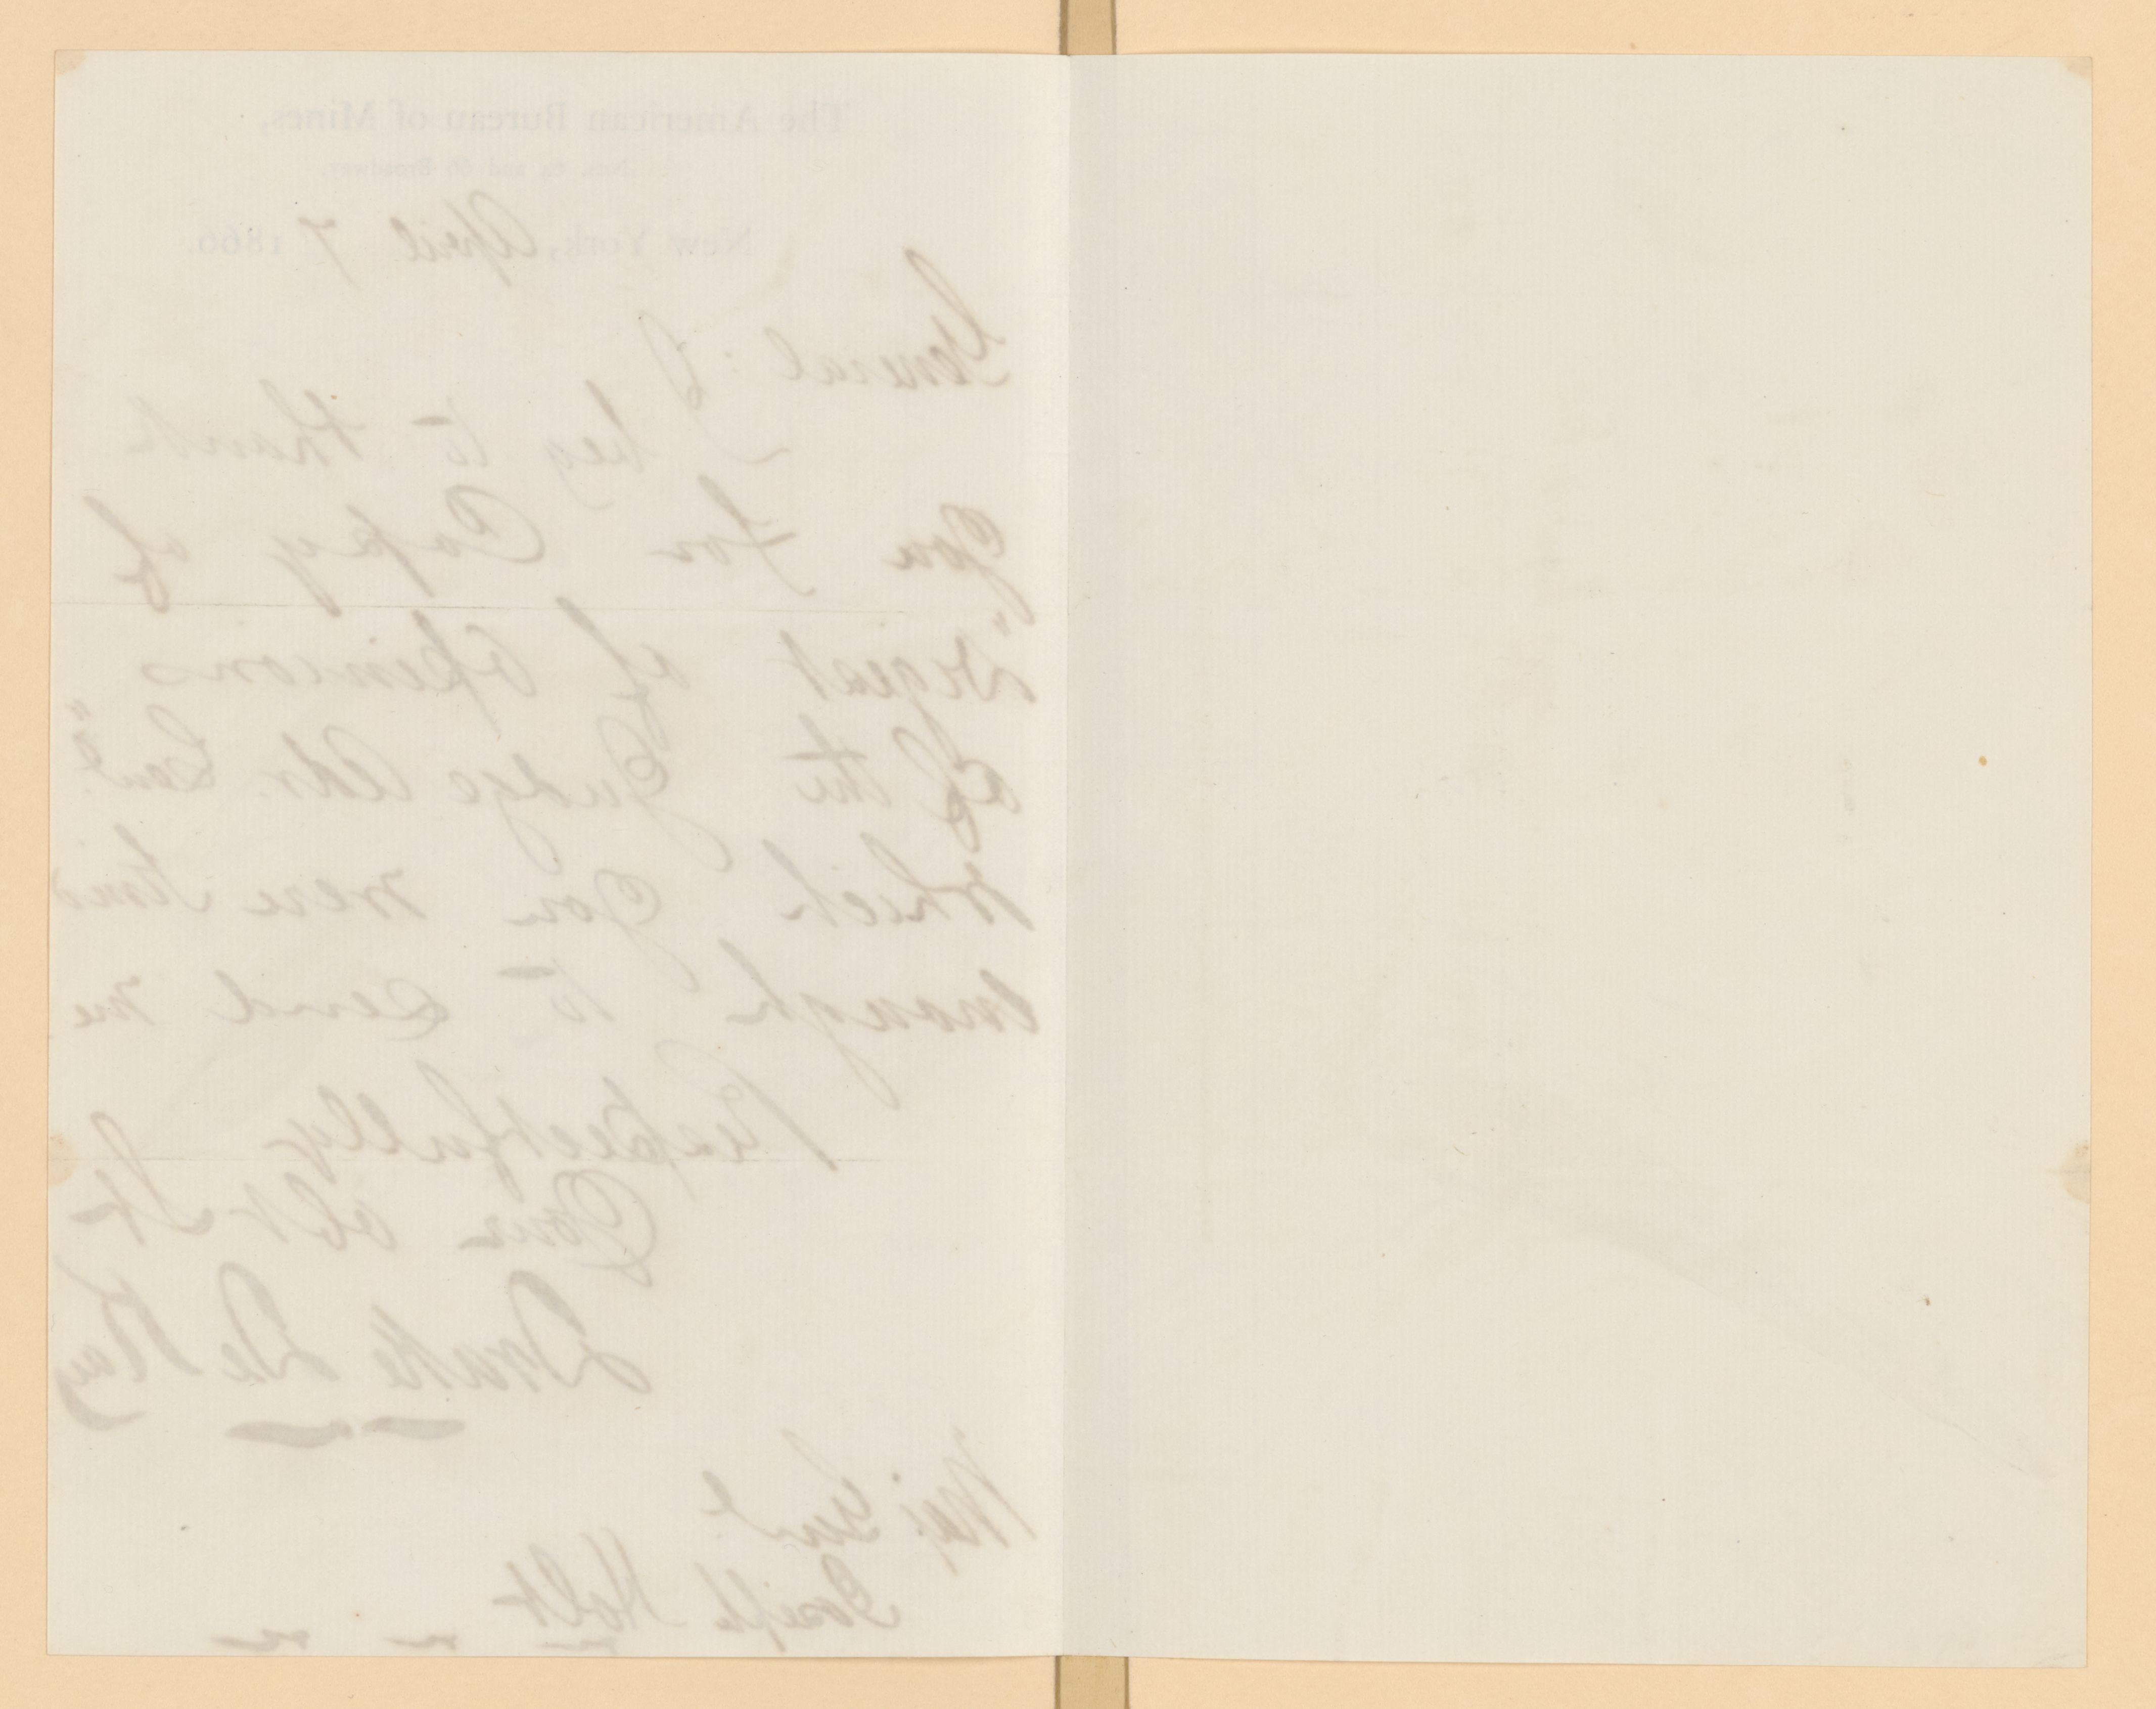 The American Bureau of Mines,
Nos. 64 and 66 Broadway,
New York, April 7 1866.
General: I
beg to thank
you for Copy of
"Digest of Opinions
of the Judge Adv. Genl."
which you were kind
enough to send me
Respectfully
Your obt St
Drake De Kay
Maj Genl
Joseph Holt